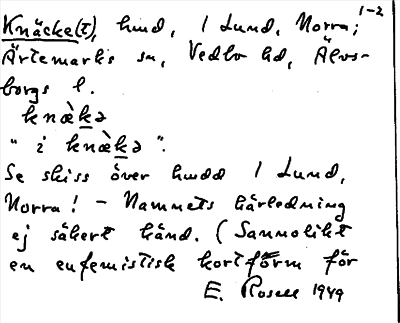 1-2
Knäcke(t), hmd, 1 Lund, Norra;
Ärtemarks sn, Vedbo hd, Älvs-
borgs l.
knæ̀kə
"i knæ̀kə".
Se skiss över hmdd 1 Lund,
Norra! – Namnets härledning
ej säkert känd. (Sannolikt
en eufemistisk kortform för
E. Rosell 1949